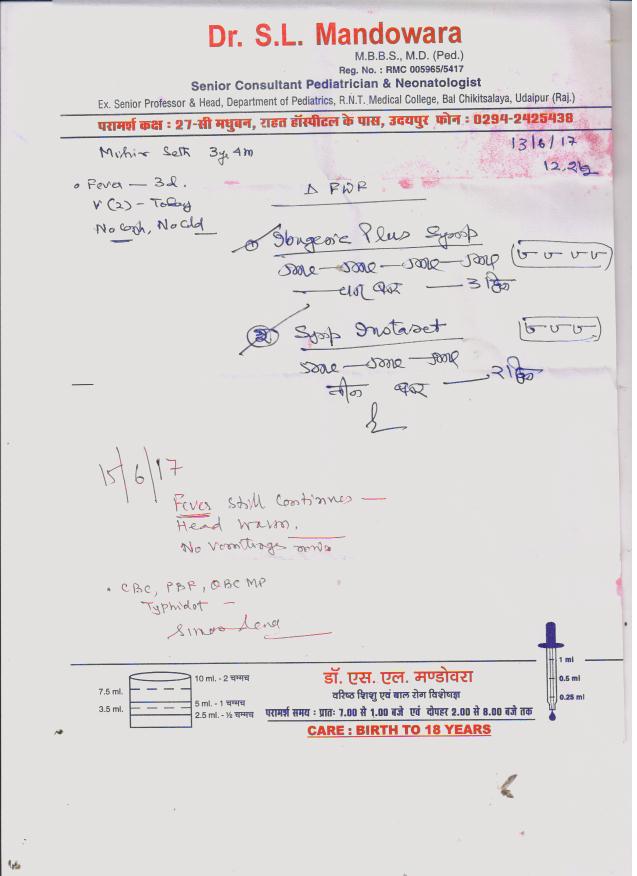 Dr. S.L. Mandowara
M.B.B.S., M.D. (Ped.)
Reg. No. : RMC 005965/5417
Senior Consultant Pediatrician & Neonatologist
Ex. Senior Professor & Head, Department of Pediatrics, R.N.T. Medical College, Bal Chikitsalaya, Udaipur (Raj.)
परामर्श कक्ष : 27-सी मधुबन, राहत हॉस्पीटल के पास, उदयपुर फोन : 0294-2425438
13/6/17
Mihir Seth 3y 4m
12.2
• Fever — 3d.
V (2) - Today
No Cough, No Cold
Δ
Plus Syrup
3 दिन
Syrup Instaset
तीन बार — 2 दिन
15/6/17
Fever still continues —
Head warm.
No vomitings
• CBC, PBF, QBC MP
Typhidot —
10 ml. - 2 चम्मच
7.5 ml.
5 ml. - 1 चम्मच
3.5 ml.
2.5 ml. - ½ चम्मच
डॉ. एस. एल. मण्डोवरा
वरिष्ठ शिशु एवं बाल रोग विशेषज्ञ
परामर्श समय : प्रातः 7.00 से 1.00 बजे एवं दोपहर 2.00 से 8.00 बजे तक
CARE : BIRTH TO 18 YEARS
1 ml
0.5 ml
0.25 ml